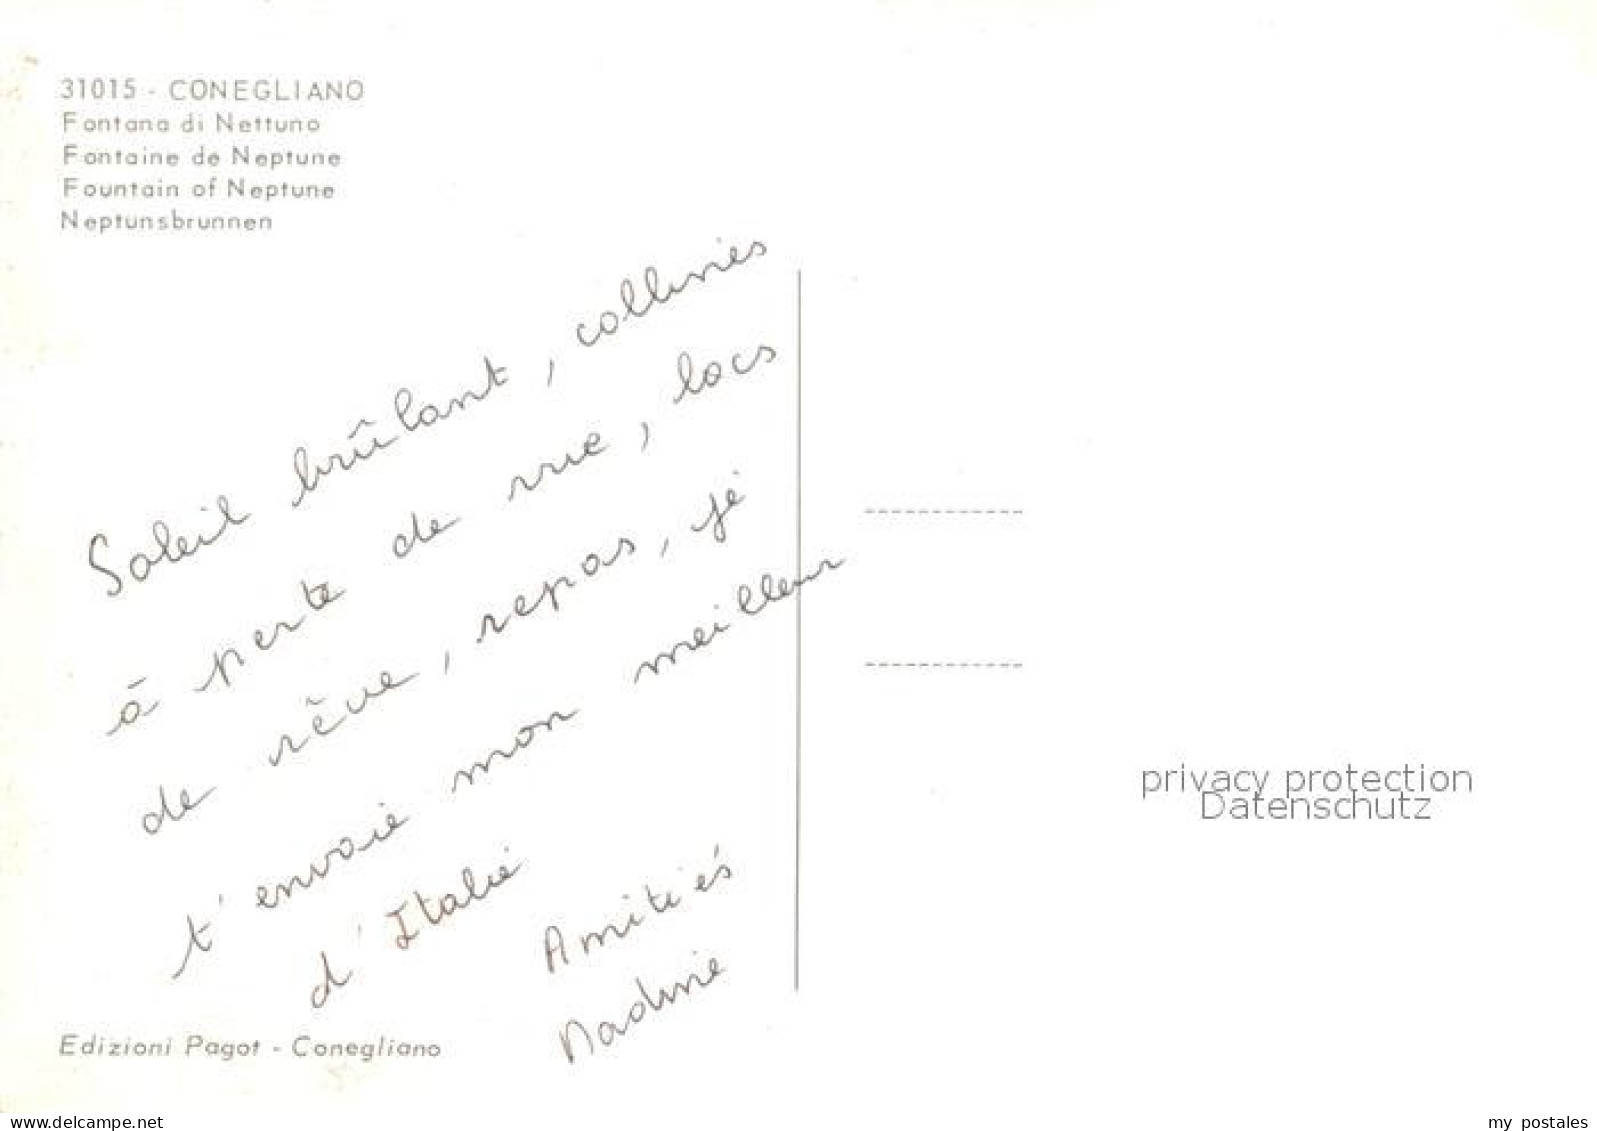 31015 - CONEGLIANO
Fontana di Nettuno
Fontaine de Neptune
Fountain of Neptune
Neptunsbrunnen
Soleil brûlant, collines
à perte de vue, lacs
de rêve, repas, je
t'envoie mon meilleur
d'Italie
Amitiés
Nadine
Edizioni Pagot - Conegliano
privacy protection
Datenschutz
www.delcampe.net
my_postales